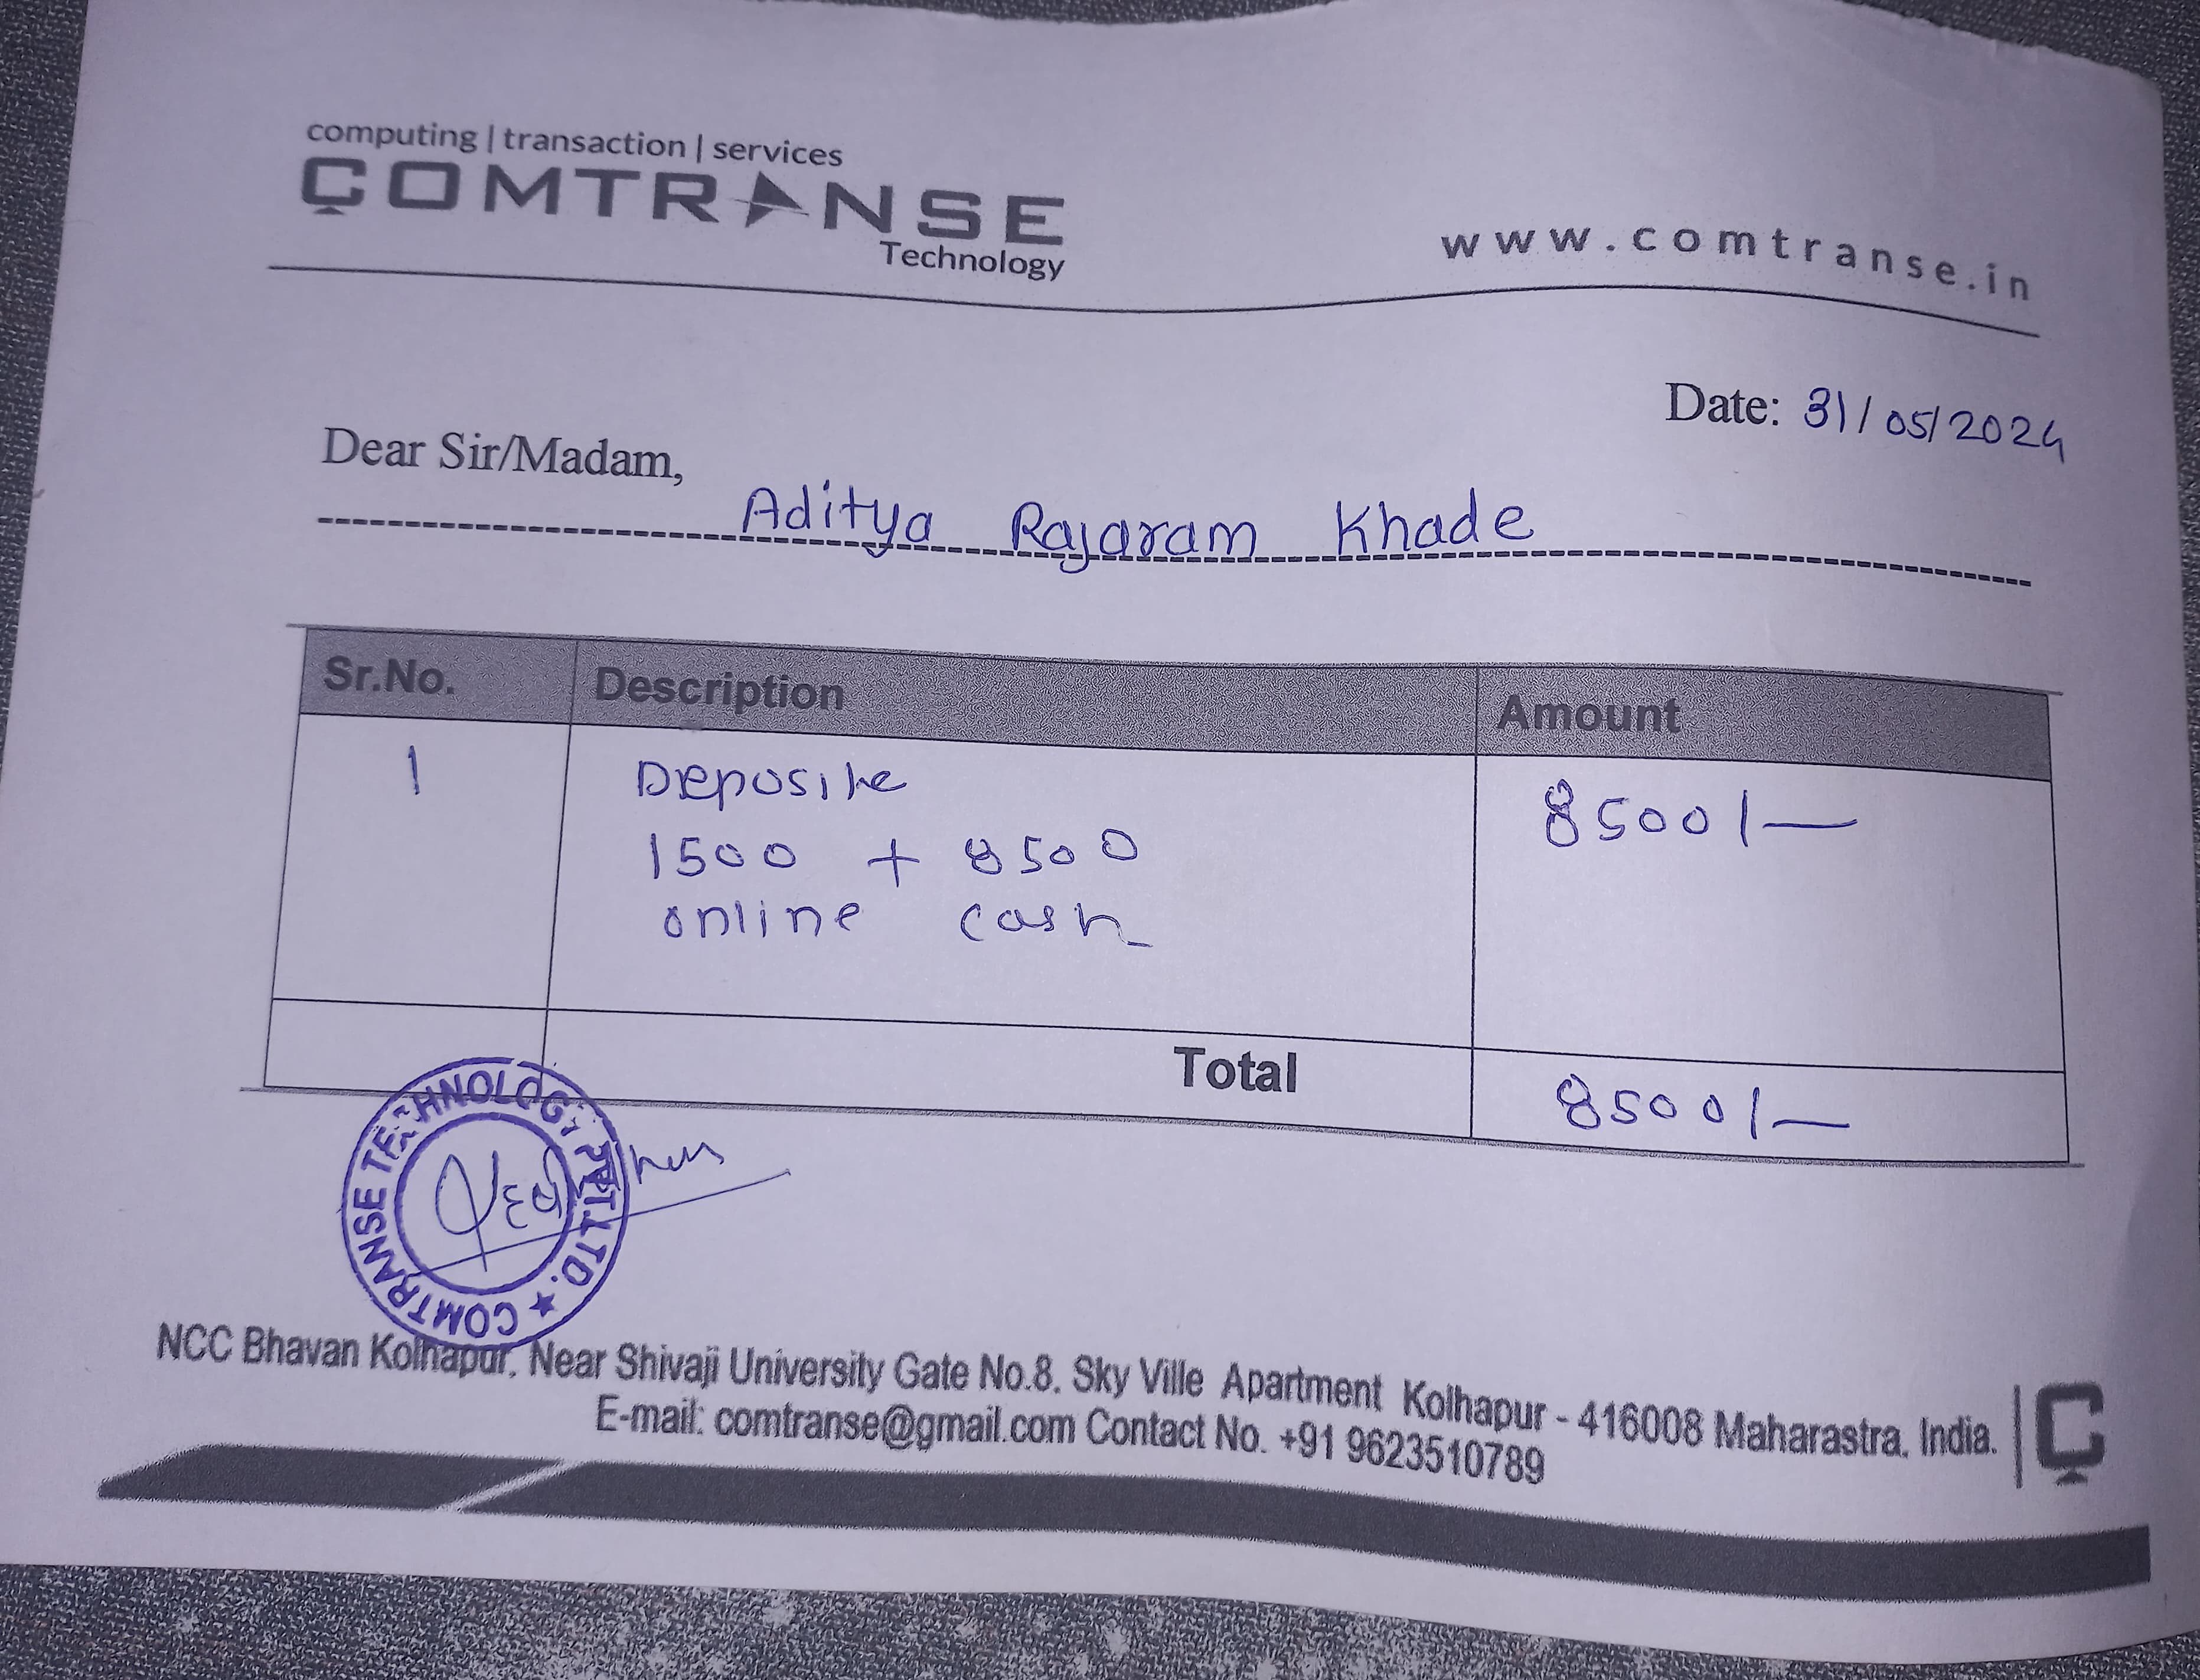 computing | transaction | services
COMTRANSE
Technology
www.comtranse.in
Date: 31/05/2024
Dear Sir/Madam,
Aditya Rajaram Khade
Sr.No. Description Amount
1 Deposite 8500/-
1500 + 8500
online cash
Total 8500/-
COMTRANSE TECHNOLOGY PVT. LTD. ★
NCC Bhavan Kolhapur, Near Shivaji University Gate No.8, Sky Ville Apartment Kolhapur - 416008 Maharastra, India.
E-mail: comtranse@gmail.com Contact No. +91 9623510789